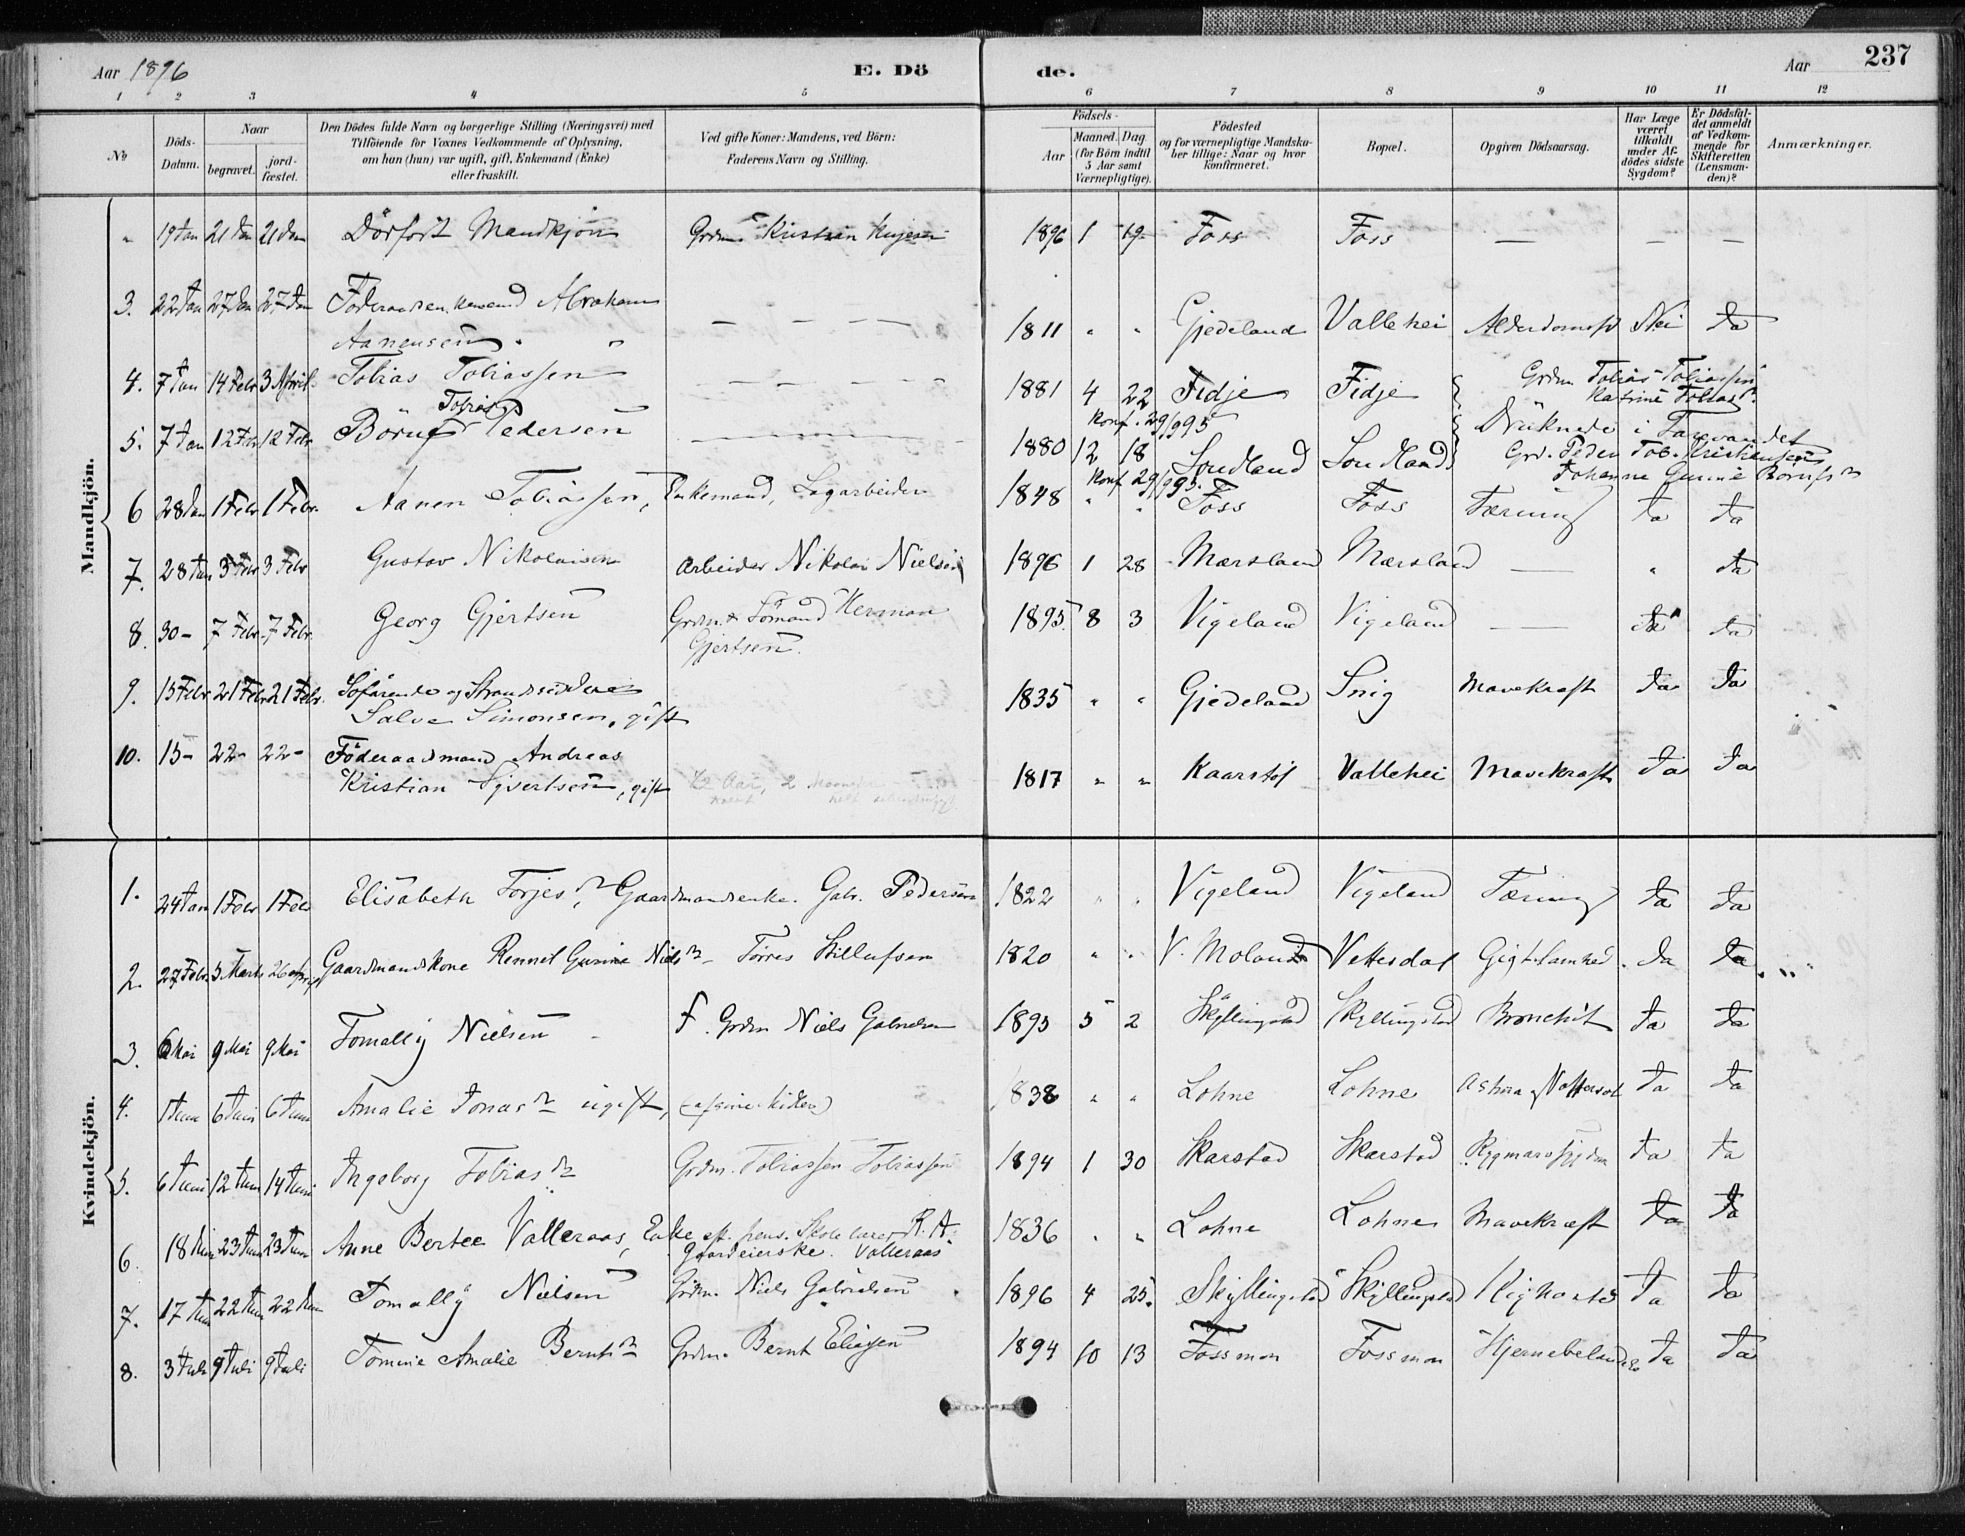 Aar 1896 E. Dö de. Aar 237
1 2 3 4 5 6 7 8 9 10 11 12
No
Döds-Datum.
Naar
begravet.
jord-fæstet.
Den Dödes fulde Navn og borgerlige Stilling (Næringsvei) med
Tilföiende for Voxnes Vedkommende af Oplysning,
om han (hun) var ugift, gift, Enkemand (Enke)
eller fraskilt.
Ved gifte Koner: Mandens, ved Börn:
Faderens Navn og Stilling.
Födsels-
Aar
Maaned. Dag
(for Börn indtil
5 Aar samt
Værnepligtige).
Födested
og for værnepligtige Mandska-
ber tillige: Naar og hvor
konfirmeret.
Bopæl.
Opgiven Dödsaarsag.
Har Læge
været
tilkaldt
under Af-
dödes sidste
Sygdom?
Er Dödsfal-
det anmeldt
af Vedkom-
mende for
Skifteretten
(Lensman-
den)?
Anmærkninger.
Mandkjön.
" 19 Jan 21 Jan 21 Jan Dörfört Mandkjön Grdm. Kristian 1896 1 19 Foss Foss — — —
3. 22 Jan 27 Jan 27 Jan Föderaadsenkemand Abraham
Aanensen — — — — 1811 " " Gjedeland Vallehei Alderdomssv Nei Ja
4. 7 Jan 14 Febr 3 April Tobias Tobiassen — — — — 1881 4 22 Fidje Fidje Grdm Tobias Tobiassen
Katrine Tobiasdr.
Konf. 29/9 95
Druknede i Tarevandet
5. 7 Jan 12 Febr 12 Febr Böruf Tobias Pedersen 1880 12 18 Soudland Soudland Grd. Peder Tob. Kristiansen
Johanne Gurine Börufsdr
Konf 29/9 95.
6 28 Jan 1 Febr 1 Febr. Aanen Tobiassen, Enkemand, Sagarbeider 1848 " " Foss Foss Tæring Ja Ja
7. 28 Jan 3 Febr 3 Febr Gustav Nikolaisen Arbeider Nikolai Nielsen 1896 1 28 Mærsland Mærsland — " Ja
8. 30 - 7 Febr. 7 Febr. Georg Gjertsen Grdm. & Sömand Herman
Gjertsen. 1895 8 3 Vigeland Vigeland — Ja Ja
9. 15 Febr 21 Febr 21 Febr. Söfarende og Strandsidder
Salve Simonsen, gift 1835 " " Gjedeland Snig Mavekræft Ja Ja
10. 15 - 22 - 22 - Föderaadsmand Andreas
Kristian Syvertsen, gift 1817 " " Kaarstöl Vallehei Mavekræft Ja Ja
72 Aar, 2 Maaneder
Kvindekjön.
1. 24 Jan 1 Febr 1 Febr Elisabeth Torjesdr, Gaardmandsenke. Gabr. Pedersen 1822 " " Vigeland Vigeland Tæring Ja Ja
2. 27 Febr. 5 Marts 26 April Gaardmandskone Rennel Gurine Nielsdr - Torres Stillufsen 1820 " " V. Moland Vettesdal Gigt-lamhed. Ja Ja
3. 6 Mai 9 Mai 9 Mai Tomally Nielsen - F. Grdm Niels Gabrielsen 1895 5 2 Skjllingstad Skjllingstad Bronchit Ja Ja
4. 1 Juni 6 Juni 6 Juni Amalie Jonasdr ugift, 1838 " " Lohne Lohne Asthma & Vattersot Ja Ja
5. 6 Juni 12 Juni 14 Juni Ingeborg Tobiasdr Grdm. Tobiassen Tobiassen 1894 1 30 Skarstad Skarstad Rygmarvssygdm Ja Ja
6. 18 Juni 23 Juni 23 Juni Anne Bertee Valleraas, Enke eft. pens. Skolelærer R. A.
Gaardeierske. Valleraas 1836 " " Lohne Lohne Mavekræft Ja Ja
7. 17 Juni 22 Juni 22 Juni Tomally Nielsen Grdm. Niels Gabrielsen 1896 4 25. Skjllingstad Skjllingstad Kighoste Ja Ja
8. 3 Juli 9 Juli 9 Juli Tomine Amalie Berntsdr Grdm. Bernt Eliasen 1894 10 13 Fossmon Fossmon Hjernebetændelse Ja Ja